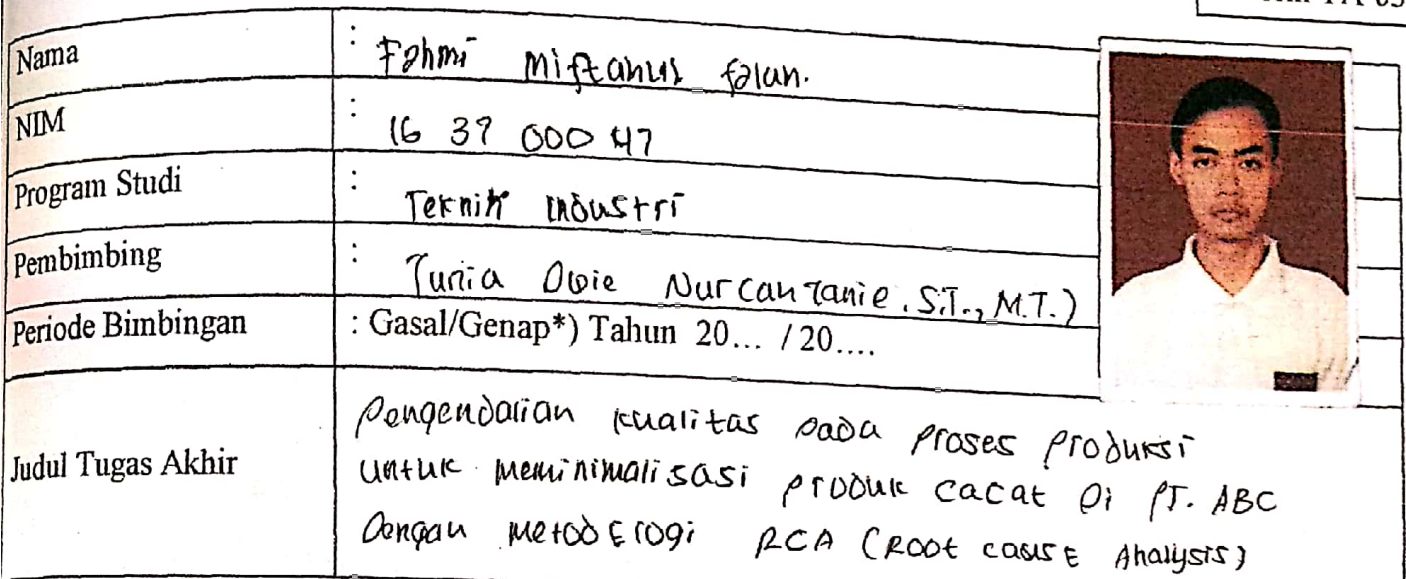 Nama : Fahmi Miftahus falah.
NIM : 16 39 000 47
Program Studi : Teknik Industri
Pembimbing : Turia Dwie Nurcahyanie, S.T., M.T.)
Periode Bimbingan : Gasal/Genap*) Tahun 20... / 20....
Judul Tugas Akhir
Pengendalian kualitas pada proses produksi
untuk meminimalisasi produk cacat Di PT. ABC
Dengan metodelogi RCA (Root cause Analysis)